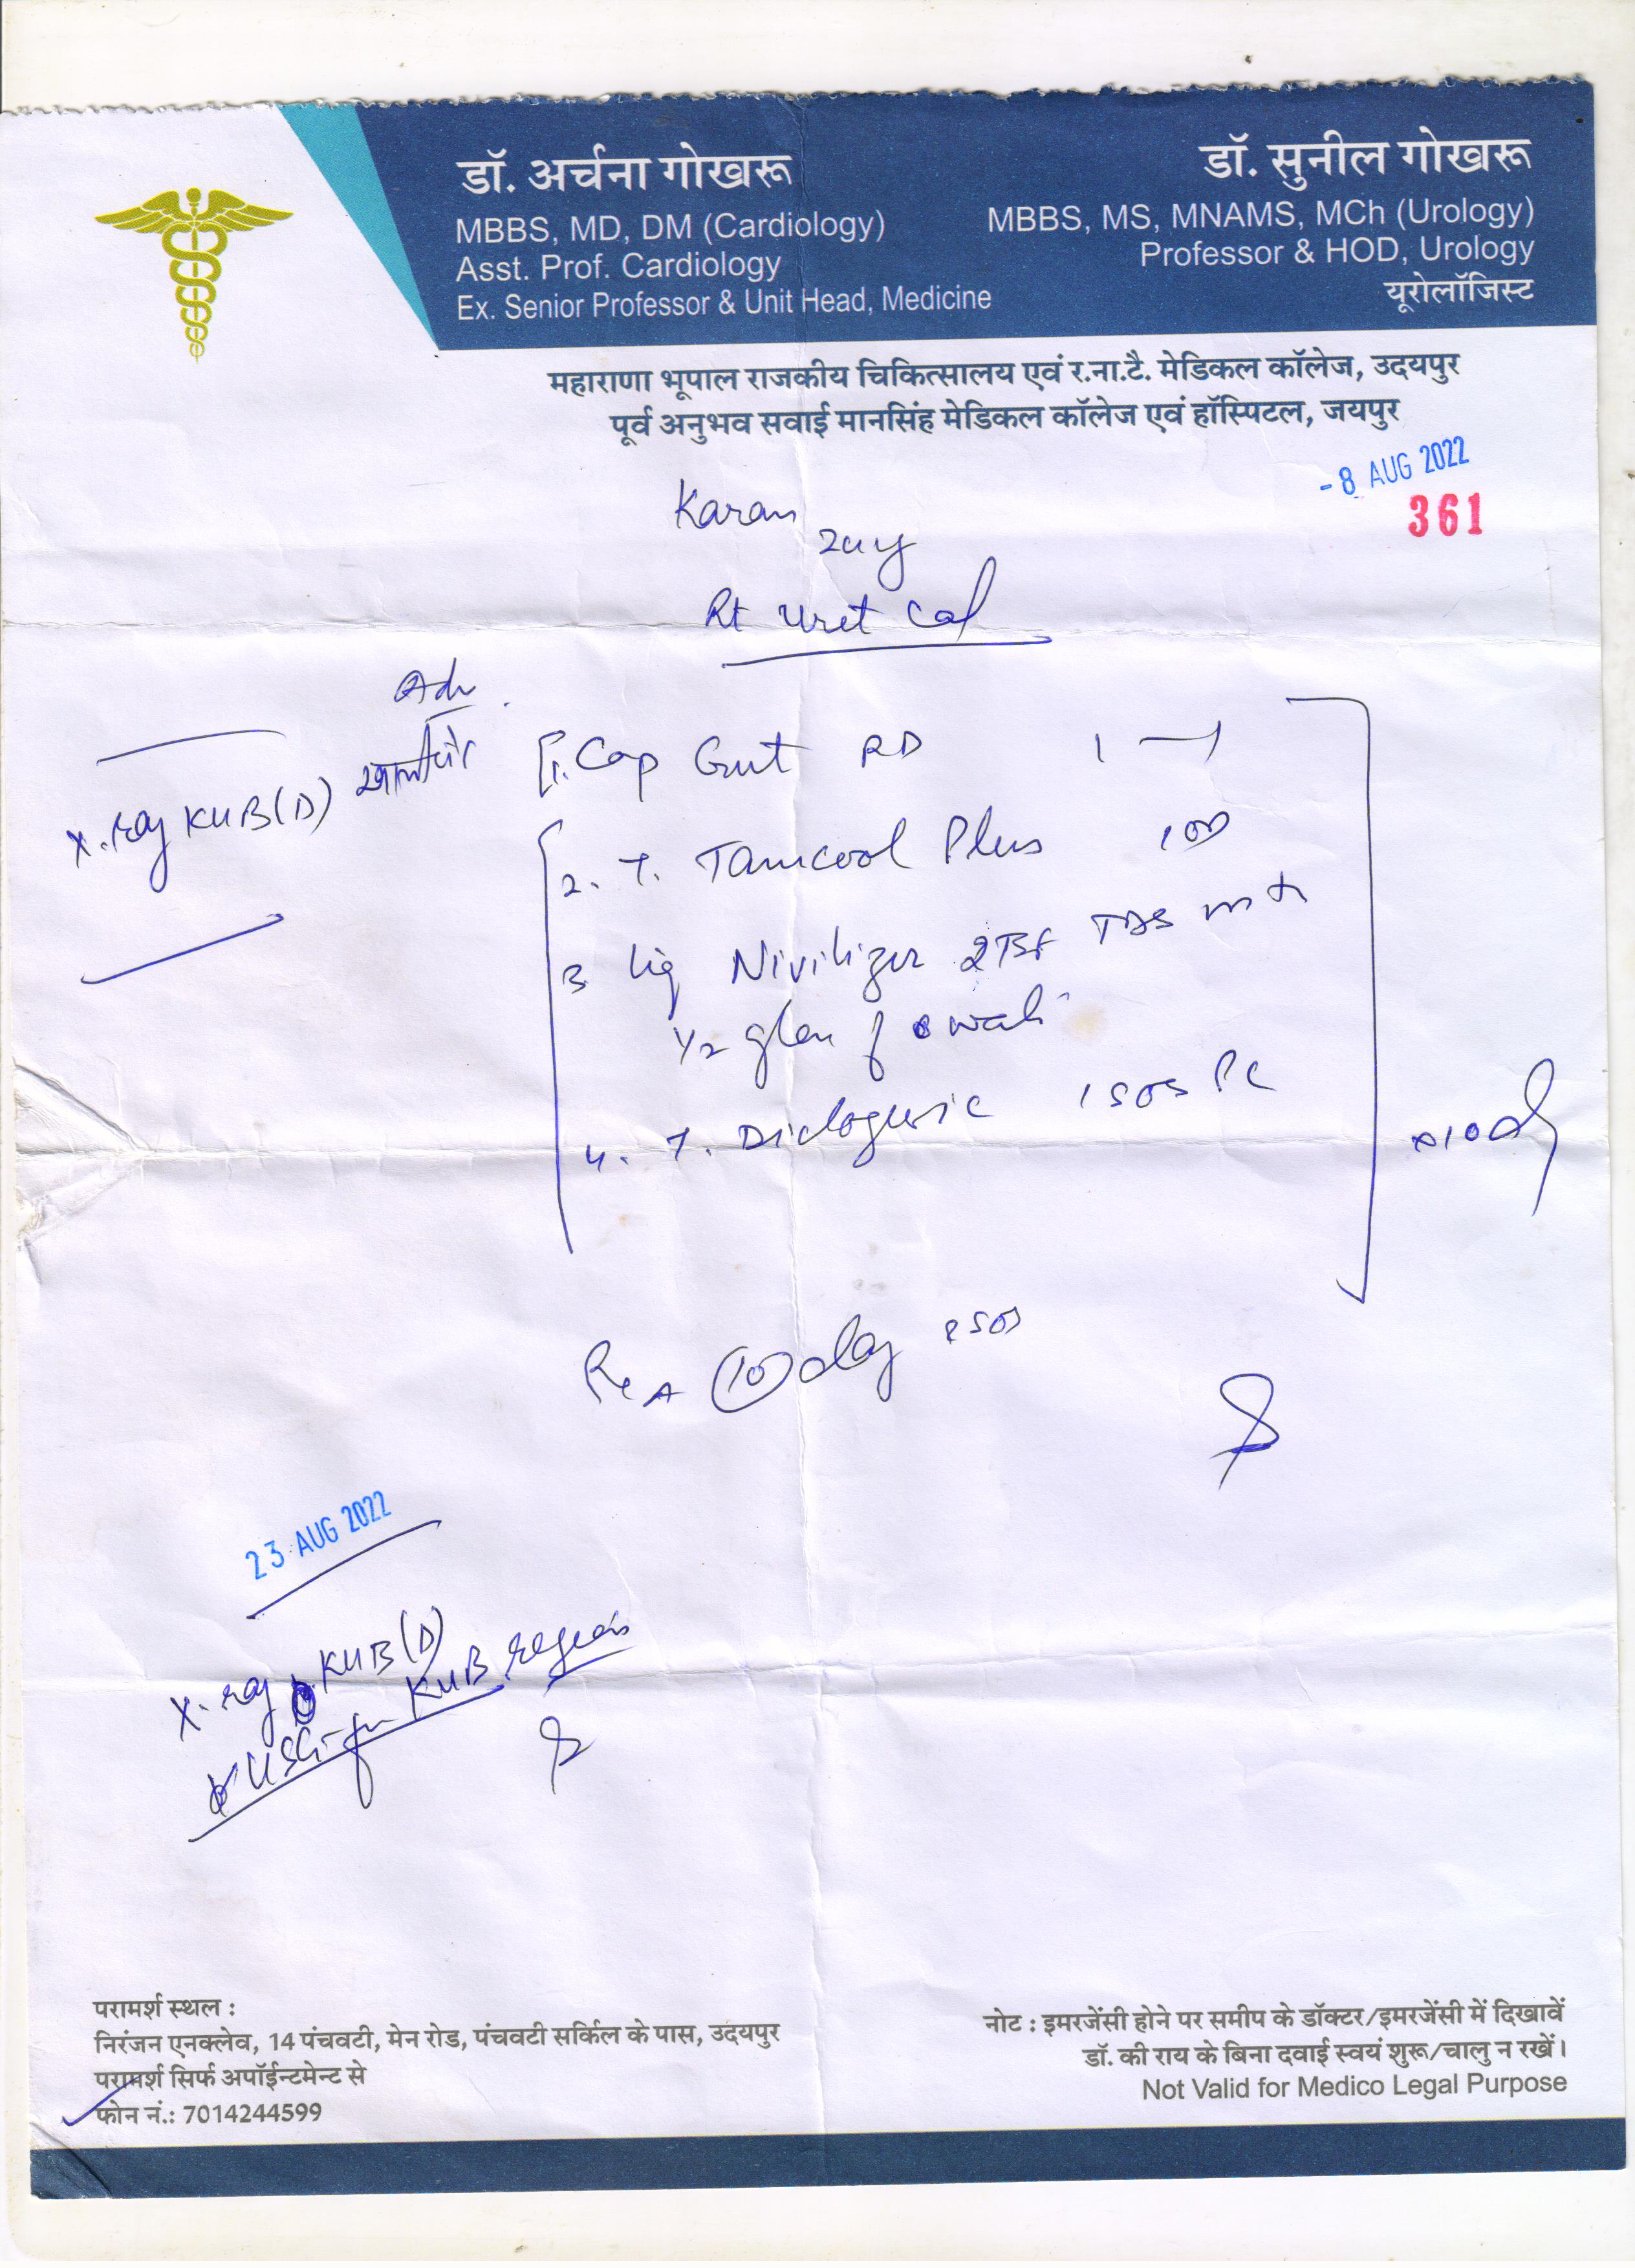 डॉ. अर्चना गोखरू
MBBS, MD, DM (Cardiology)
Asst. Prof. Cardiology
Ex. Senior Professor & Unit Head, Medicine
डॉ. सुनील गोखरू
MBBS, MS, MNAMS, MCh (Urology)
Professor & HOD, Urology
यूरोलॉजिस्ट
महाराणा भूपाल राजकीय चिकित्सालय एवं र.ना.टै. मेडिकल कॉलेज, उदयपुर
पूर्व अनुभव सवाई मानसिंह मेडिकल कॉलेज एवं हॉस्पिटल, जयपुर
- 8 AUG 2022
361
Karan
Rt Uret Cal
Adv
X-ray KUB(D)
1. Cap Gut RD 1 — 1
2. T. Tamcool Plus 1 OD
3 Liq Nivilizer 2 TSF TDS
1/2 glass of water
4. T. 1 SOS PC
x 10 day
(10) day SOS
23 AUG 2022
X-ray KUB(D)
USG for KUB region
परामर्श स्थल :
निरंजन एनक्लेव, 14 पंचवटी, मेन रोड, पंचवटी सर्किल के पास, उदयपुर
परामर्श सिर्फ अपॉईन्टमेन्ट से
फोन नं.: 7014244599
नोट : इमरजेंसी होने पर समीप के डॉक्टर/इमरजेंसी में दिखावें
डॉ. की राय के बिना दवाई स्वयं शुरू/चालु न रखें।
Not Valid for Medico Legal Purpose